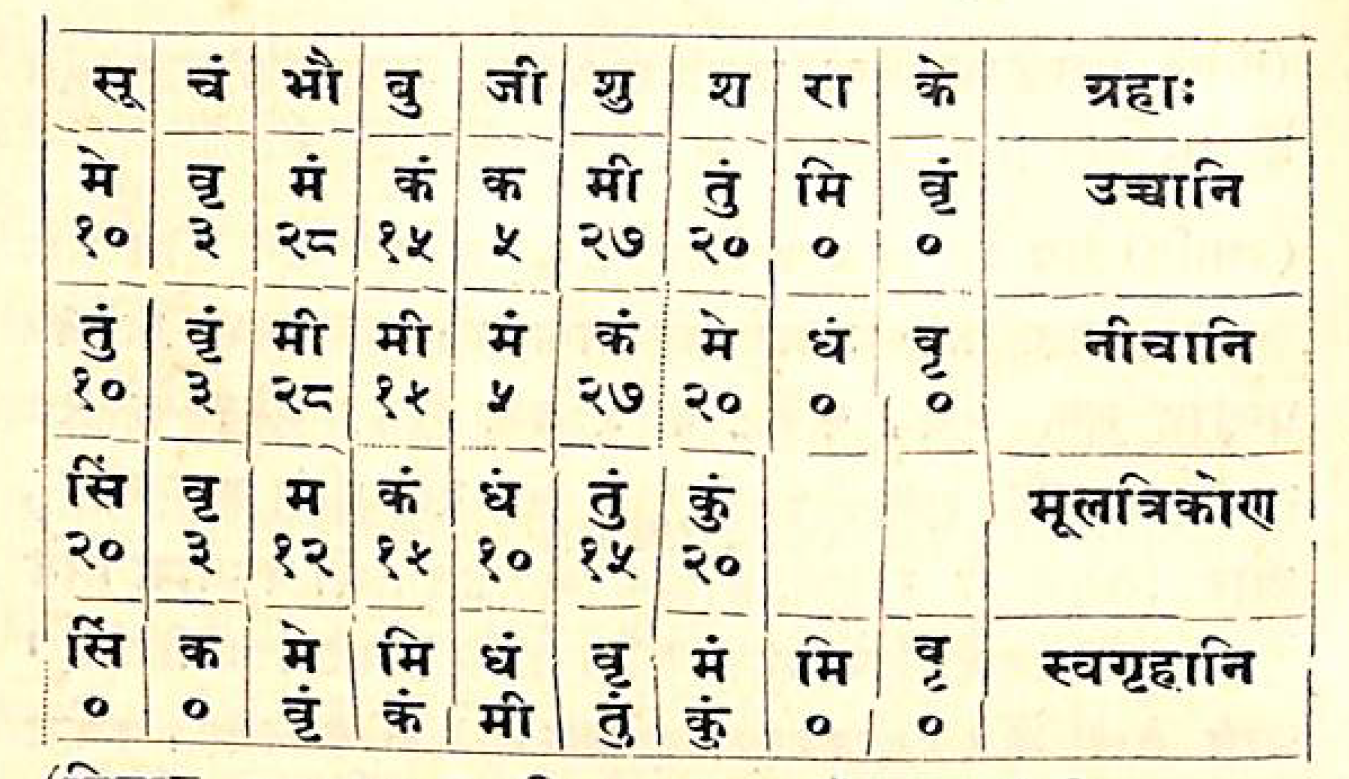 सू चं भौ बु जी शु श रा के ग्रहाः
मे वृ मं कं क मी तुं मि वृं उच्चानि
१० ३ २८ १५ ५ २७ २० ० ०
तुं वृं मी मी मं कं मे धं वृ नीचानि
१० ३ २८ १५ ५ २७ २० ० ०
सिं वृ म कं धं तुं कुं मूलत्रिकोण
२० ३ १२ १५ १० १५ २०
सिं क मे मि धं वृ मं मि वृ स्वगृहानि
० ० वृं कं मी तुं कुं ० ०